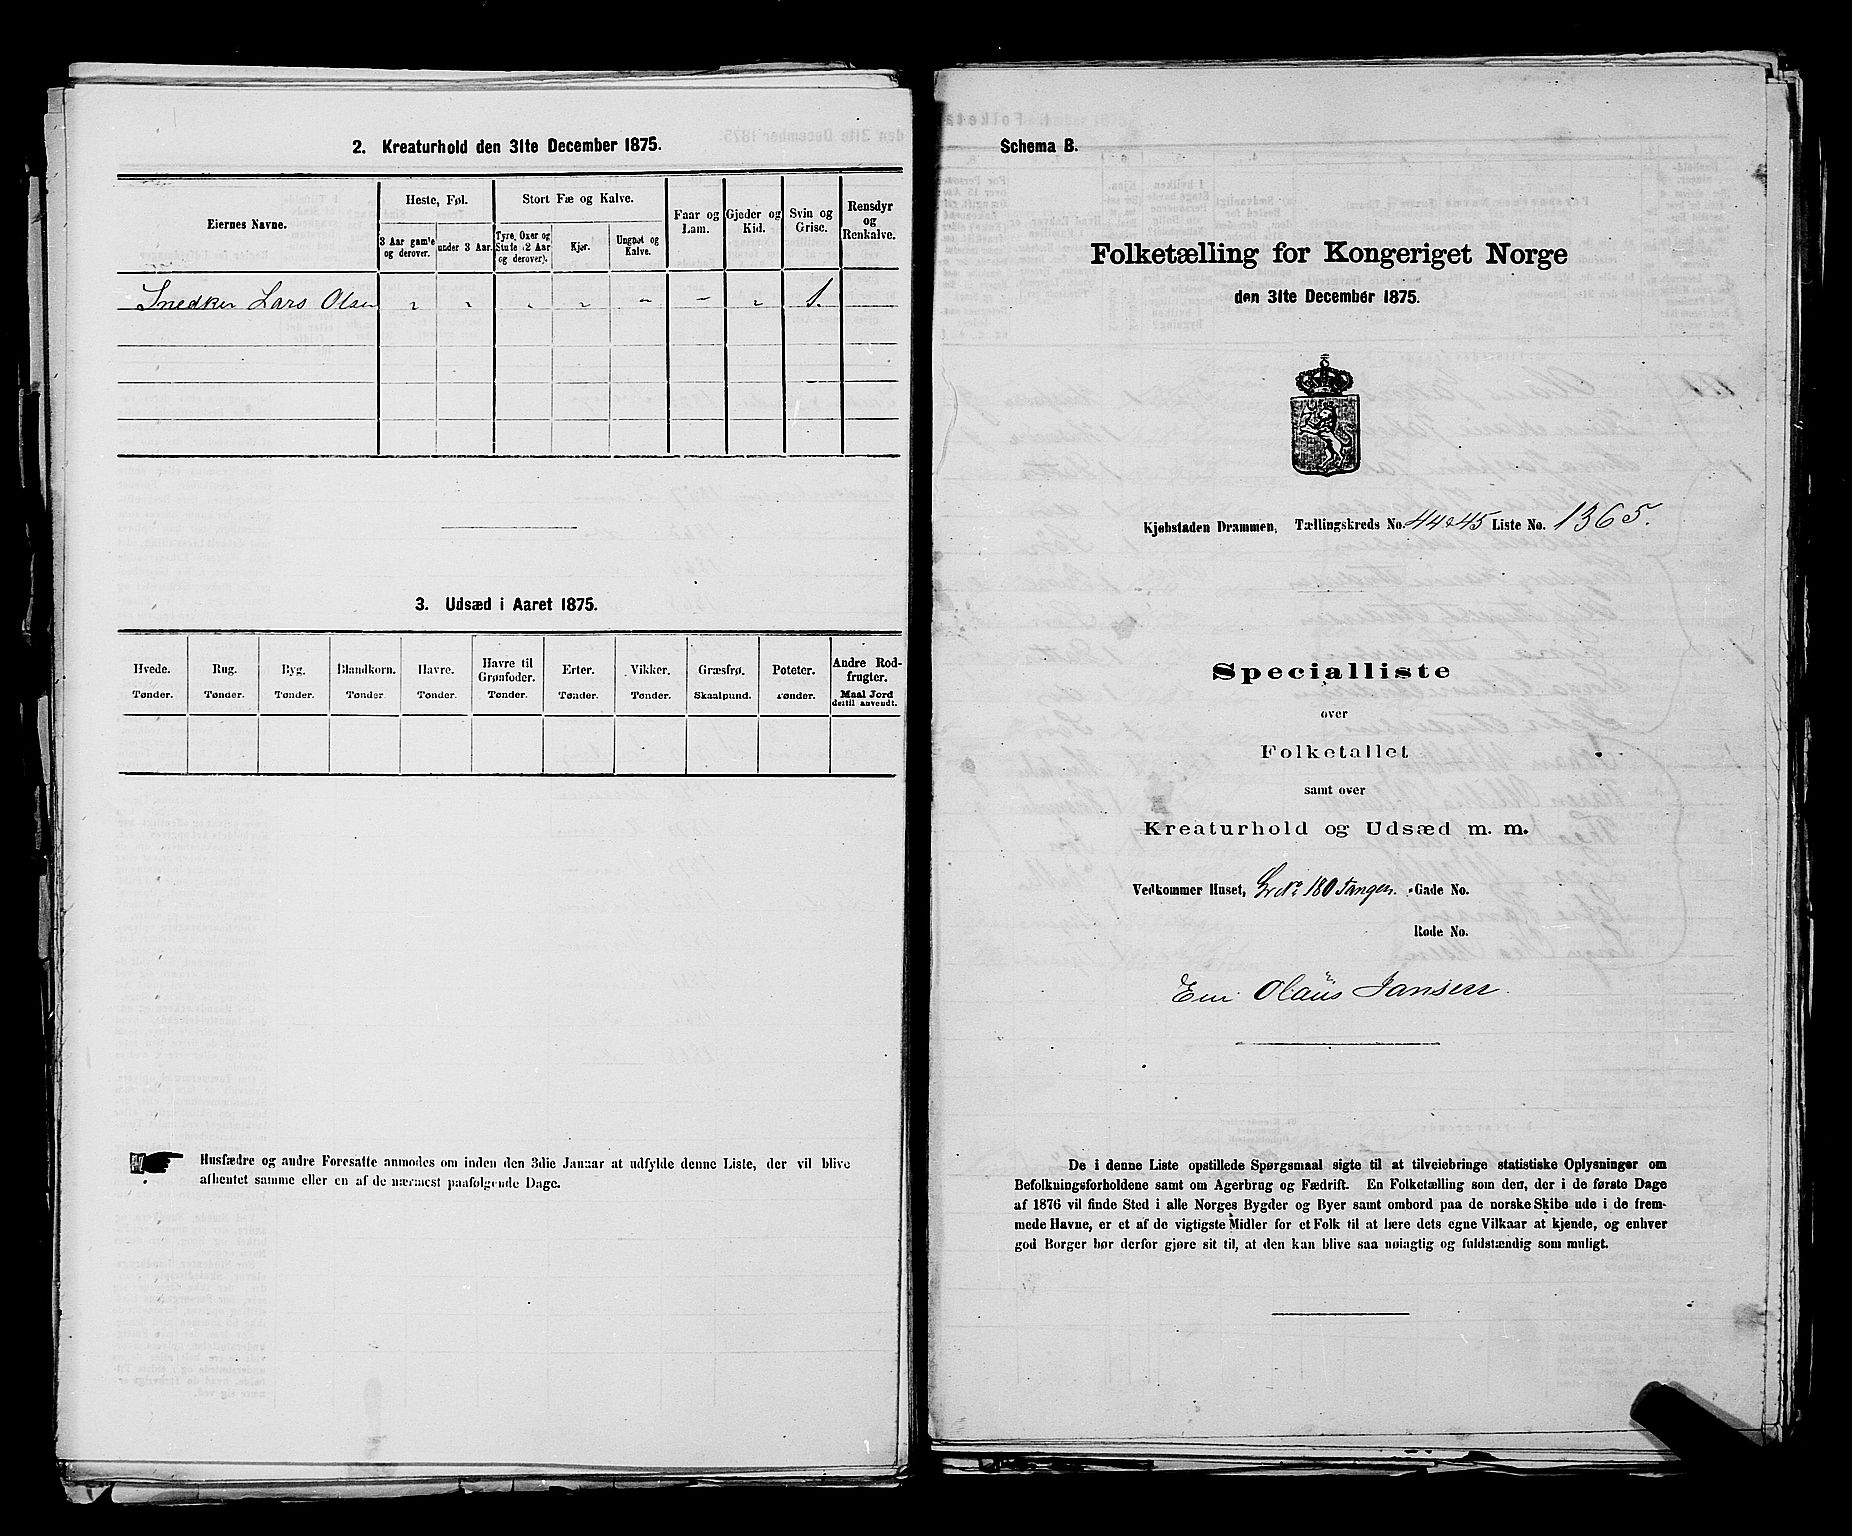 2. Kreaturhold den 31te December 1875.
Eiernes Navne.
Heste, Føl.
Stort Fæ og Kalve.
Faar og Lam.
Gjeder og Kid.
Svin og Grise.
Rensdyr og Renkalve.
3 Aar gamle og derover.
under 3 Aar.
Tyre, Oxer og Stute (2 Aar og derover).
Kjør.
Ungnøt og Kalve.
Snedker Lars Olsen „ „ „ „ „ „ „ 1.
3. Udsæd i Aaret 1875.
Hvede. Rug. Byg. Blandkorn. Havre. Havre til Grønfoder. Erter. Vikker. Græsfrø. Poteter. Andre Rodfrugter.
Tønder. Tønder. Tønder. Tønder. Tønder. Tønder. Tønder. Tønder. Skaalpund. Tønder. Maal Jord dertil anvendt.
Husfædre og andre Foresatte anmodes om inden den 3die Januar at udfylde denne Liste, der vil blive
afhentet samme eller en af de nærmest paafølgende Dage.
Schema B.
Folketælling for Kongeriget Norge
den 31te December 1875.
Kjøbstaden Drammen, Tællingskreds No. 44 & 45 Liste No. 1365.
Specialliste
over
Folketallet
samt over
Kreaturhold og Udsæd m. m.
Vedkommer Huset, Gr No 180 Tangen. Gade No.
Rode No.
Eier Olaüs Jansen.
De i denne Liste opstillede Spørgsmaal sigte til at tilveiebringe statistiske Oplysninger om
Befolkningsforholdene samt om Agerbrug og Fædrift. En Folketælling som den, der i de første Dage
af 1876 vil finde Sted i alle Norges Bygder og Byer samt ombord paa de norske Skibe ude i de frem-
mede Havne, er et af de vigtigste Midler for et Folk til at lære dets egne Vilkaar at kjende, og enhver
god Borger bør derfor gjøre sit til, at den kan blive saa nøiagtig og fuldstændig som muligt.